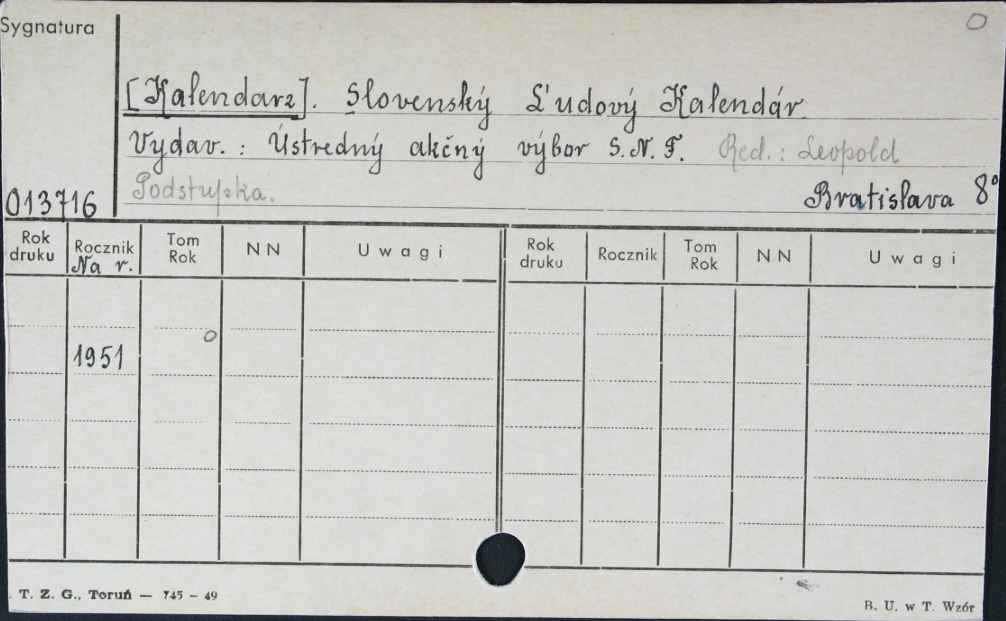 Sygnatura
[Kalendarz]. Slovenský Ľudový Kalendár
Vydav.: Ústredný akčný výbor S.N.F. Red.: Leopold
Podstupka.
013716
Bratislava 8°
Rok druku Rocznik Tom Rok N N Uwagi Rok druku Rocznik Tom Rok N N Uwagi
Na r.
1951
T. Z. G., Toruń — 745 – 49
B. U. w T. Wzór